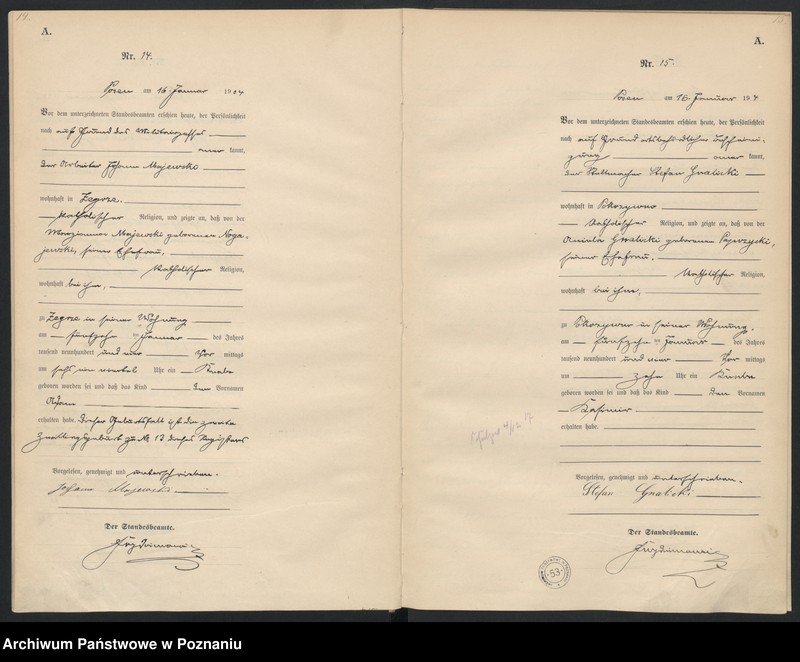 14.
A.
Nr. 14.
Posen am 16. Januar 1904
Vor dem unterzeichneten Standesbeamten erschien heute, der Persönlichkeit
nach auf Grund des Militairpasses
kannt,
der Arbeiter Johann Majewski
wohnhaft in Zegrze.
katholischer Religion, und zeigte an, daß von der
Majewski geborenen Noga-
jewski, seiner Ehefrau,
katholischer Religion,
wohnhaft bei ihm,
zu Zegrze in seiner Wohnung
am fünfzehnten Januar des Jahres
tausend neunhundert und vier Vor mittags
um sechs ein viertel Uhr ein Knabe
geboren worden sei und daß das Kind den Vornamen
Adam
erhalten habe. Dieser Geburtsfall ist die zweite
Zwillingsgeburt zu Nr. 13 dieses Registers
Vorgelesen, genehmigt und unterschrieben.
Johann Majewski
Der Standesbeamte.
15.
A.
Nr. 15.
Posen am 16. Januar 1904
Vor dem unterzeichneten Standesbeamten erschien heute, der Persönlichkeit
nach auf Grund ortsbehördlicher Bescheini-
gung kannt,
der Stellmacher Stefan Gralicki
wohnhaft in Pokrzywno
katholischer Religion, und zeigte an, daß von der
Aniela Gralicki geborenen
seiner Ehefrau,
katholischer Religion,
wohnhaft bei ihm,
zu Pokrzywno in seiner Wohnung,
am fünfzehnten Januar des Jahres
tausend neunhundert und vier Vor mittags
um zehn Uhr ein Knabe
geboren worden sei und daß das Kind den Vornamen
Kasimir
erhalten habe.
Vorgelesen, genehmigt und unterschrieben.
Stefan Gralicki
Der Standesbeamte.
53
Archiwum Państwowe w Poznaniu